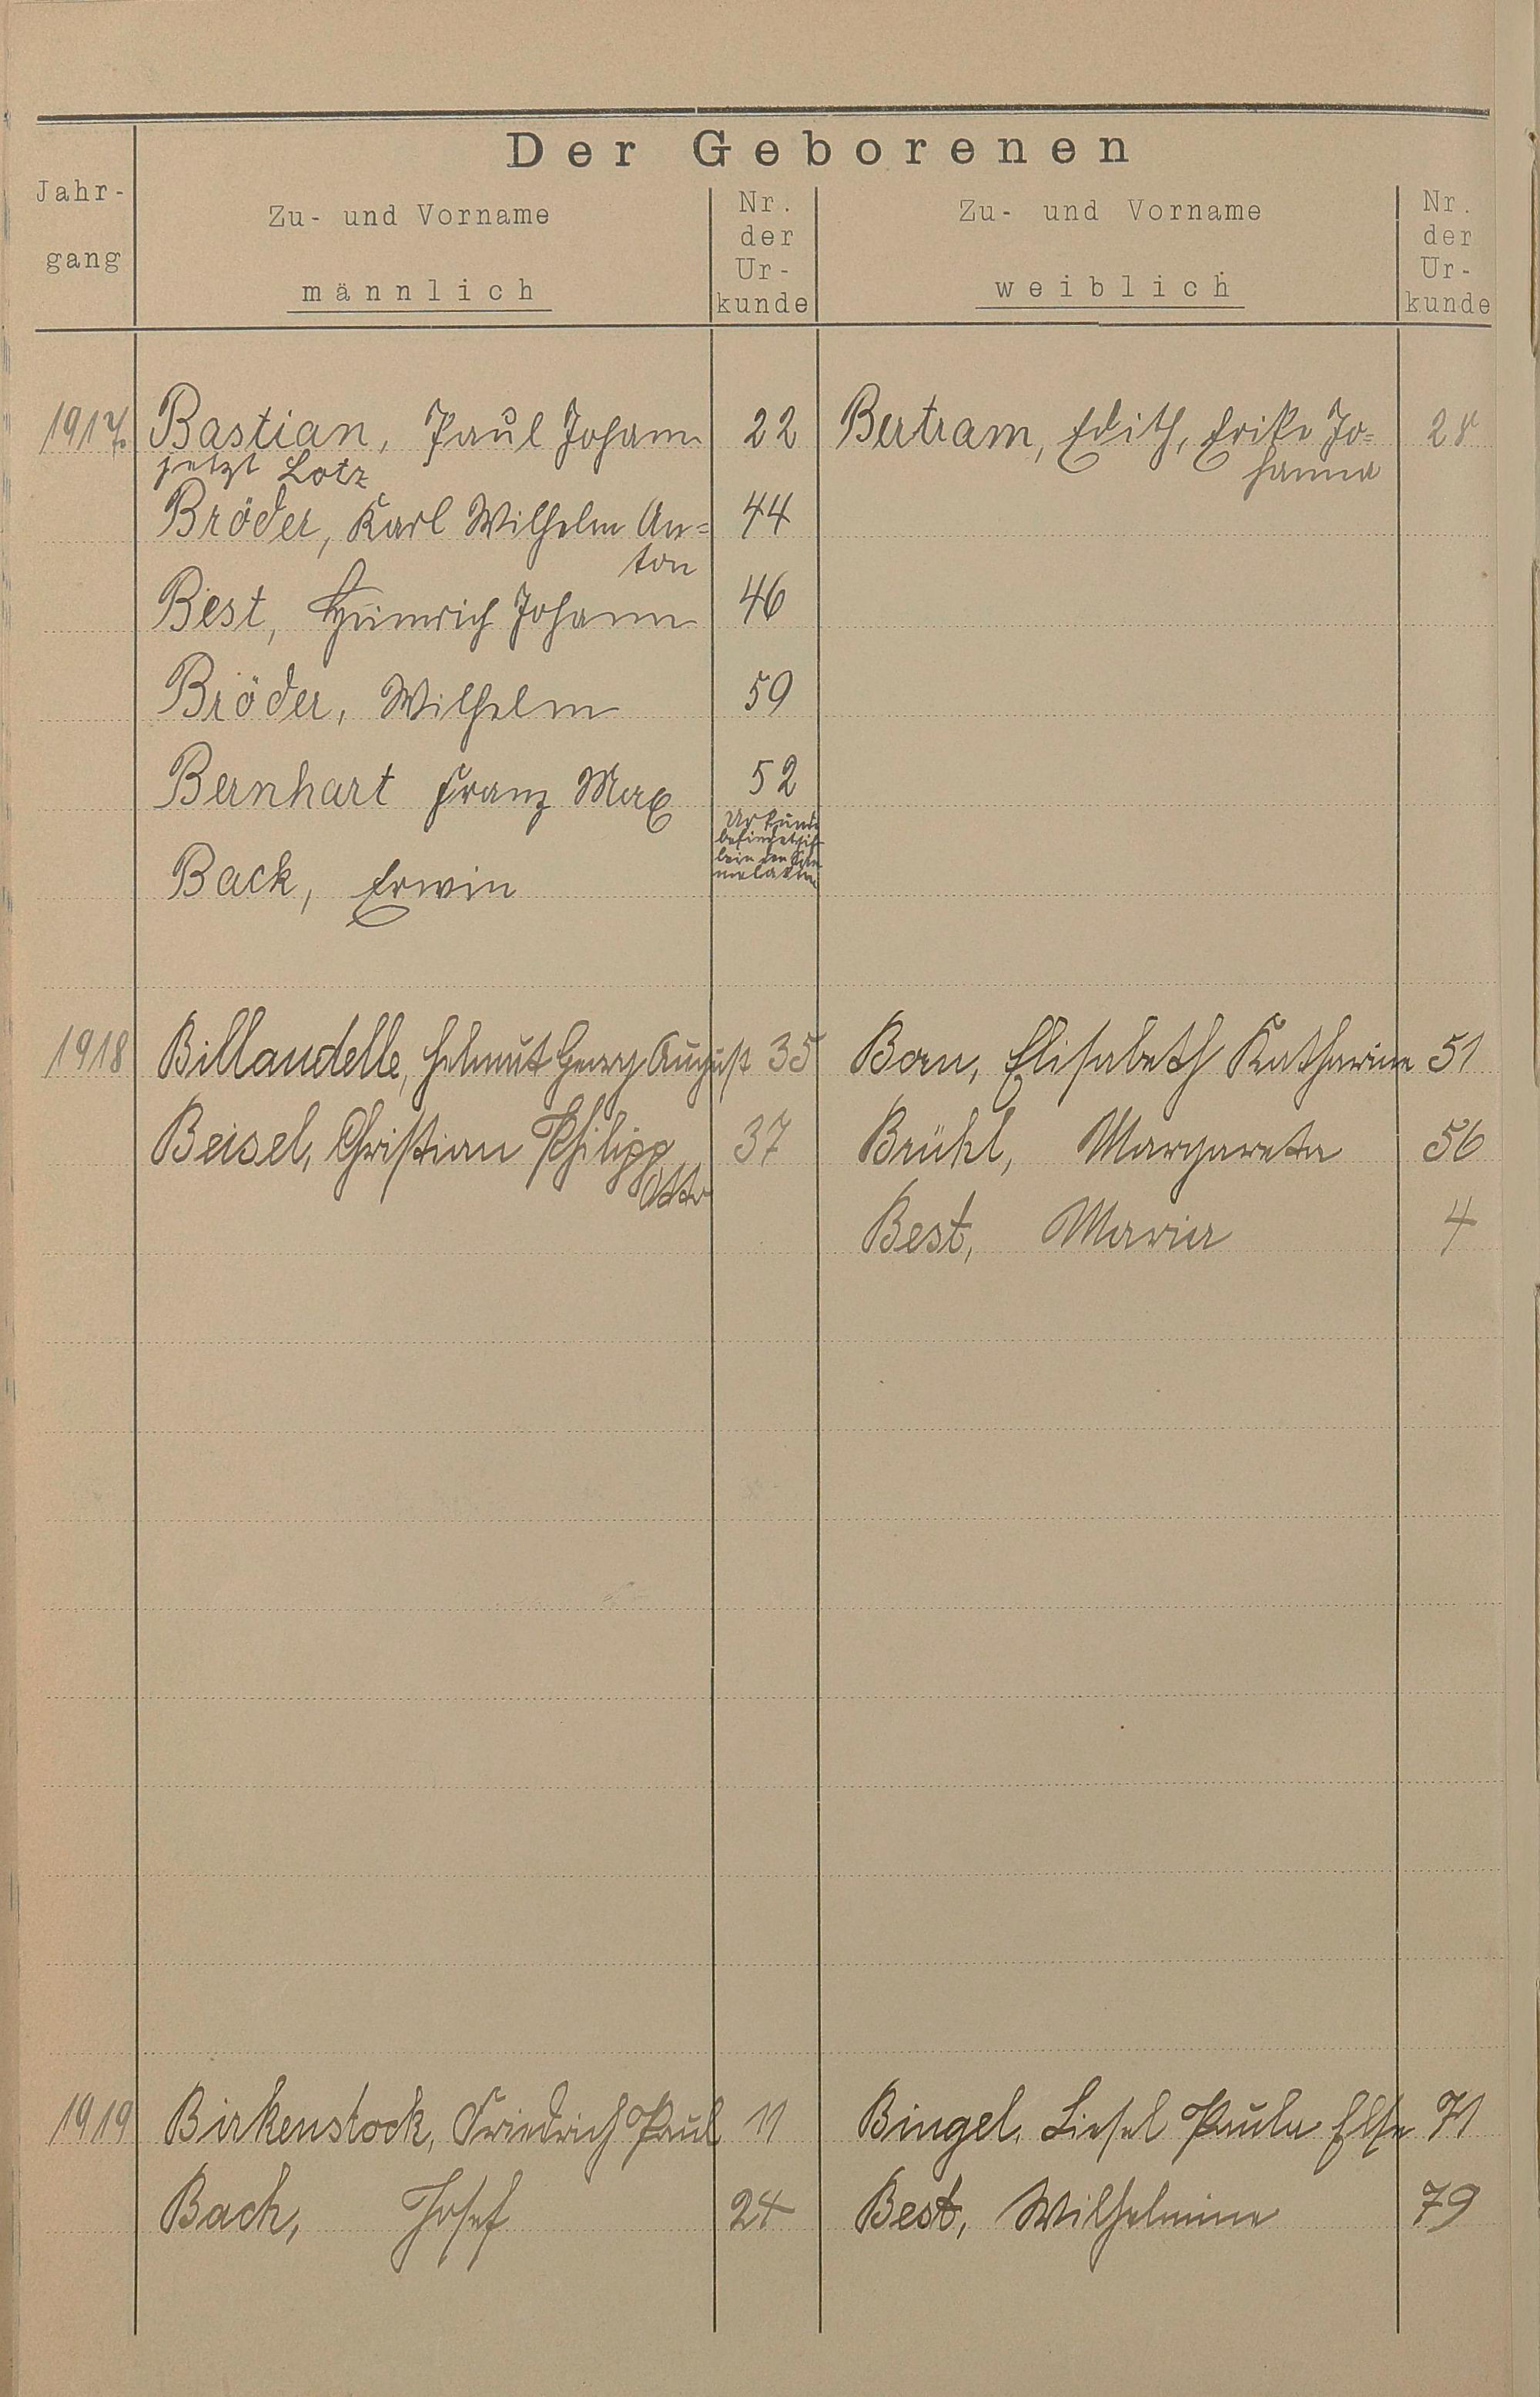 Der Geborenen
Jahr-
gang
Zu- und Vorname
männlich
Nr.
der
Ur-
kunde
Zu- und Vorname
weiblich
Nr.
der
Ur-
kunde
1917. Bastian, Paul Johann 22 Bertram, Edith, Erika Jo=
hanna 28
jetzt Lotz
Bröder, Karl Wilhelm An= 44
ton
Best, Heinrich Johann 46
Bröder, Wilhelm 59
Bernhart Franz Max 52
Back, Erwin Urkunde
befindet sich
bei den
1918 Billaudelle, Helmut Georg August 35 Born, Elisabeth Katharina 51
Beisel, Christian Philipp 37 Brühl, Margareta 56
Otto
Best, Maria 4
1919 Birkenstock, Friedrich Paul 11 Bingel, Liesel Paula Else 71
Bach, Josef 24 Best, Wilhelmine 79